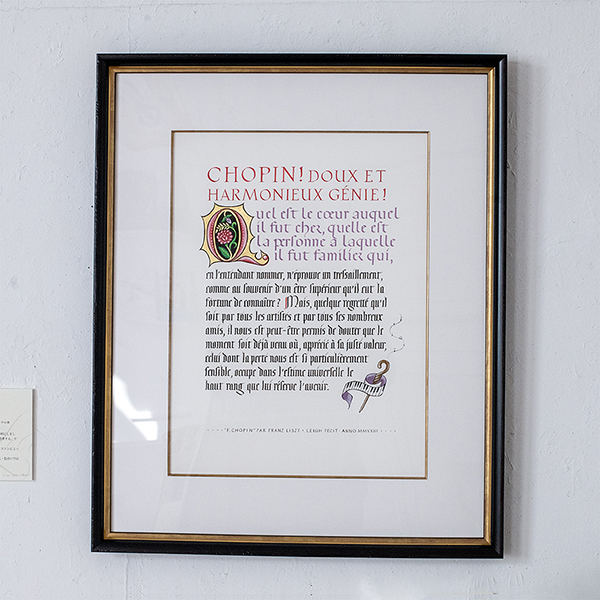 CHOPIN! DOUX ET
HARMONIEUX GÉNIE!
Quel est le cœur auquel
il fut cher, quelle est
la personne à laquelle
il fut familier qui,
en l'entendant nommer, n'éprouve un tressaillement,
comme au souvenir d'un être supérieur qu'il eut la
fortune de connaître? Mais, quelque regretté qu'il
soit par tous les artistes et par tous ses nombreux
amis, il nous est peut-être permis de douter que le
moment soit déjà venu où, apprécié à sa juste valeur,
celui dont la perte nous est si particulièrement
sensible, occupe dans l'estime universelle le
haut rang que lui réserve l'avenir.
"F. CHOPIN" PAR FRANZ LISZT · FECIT · ANNO MMXXIII